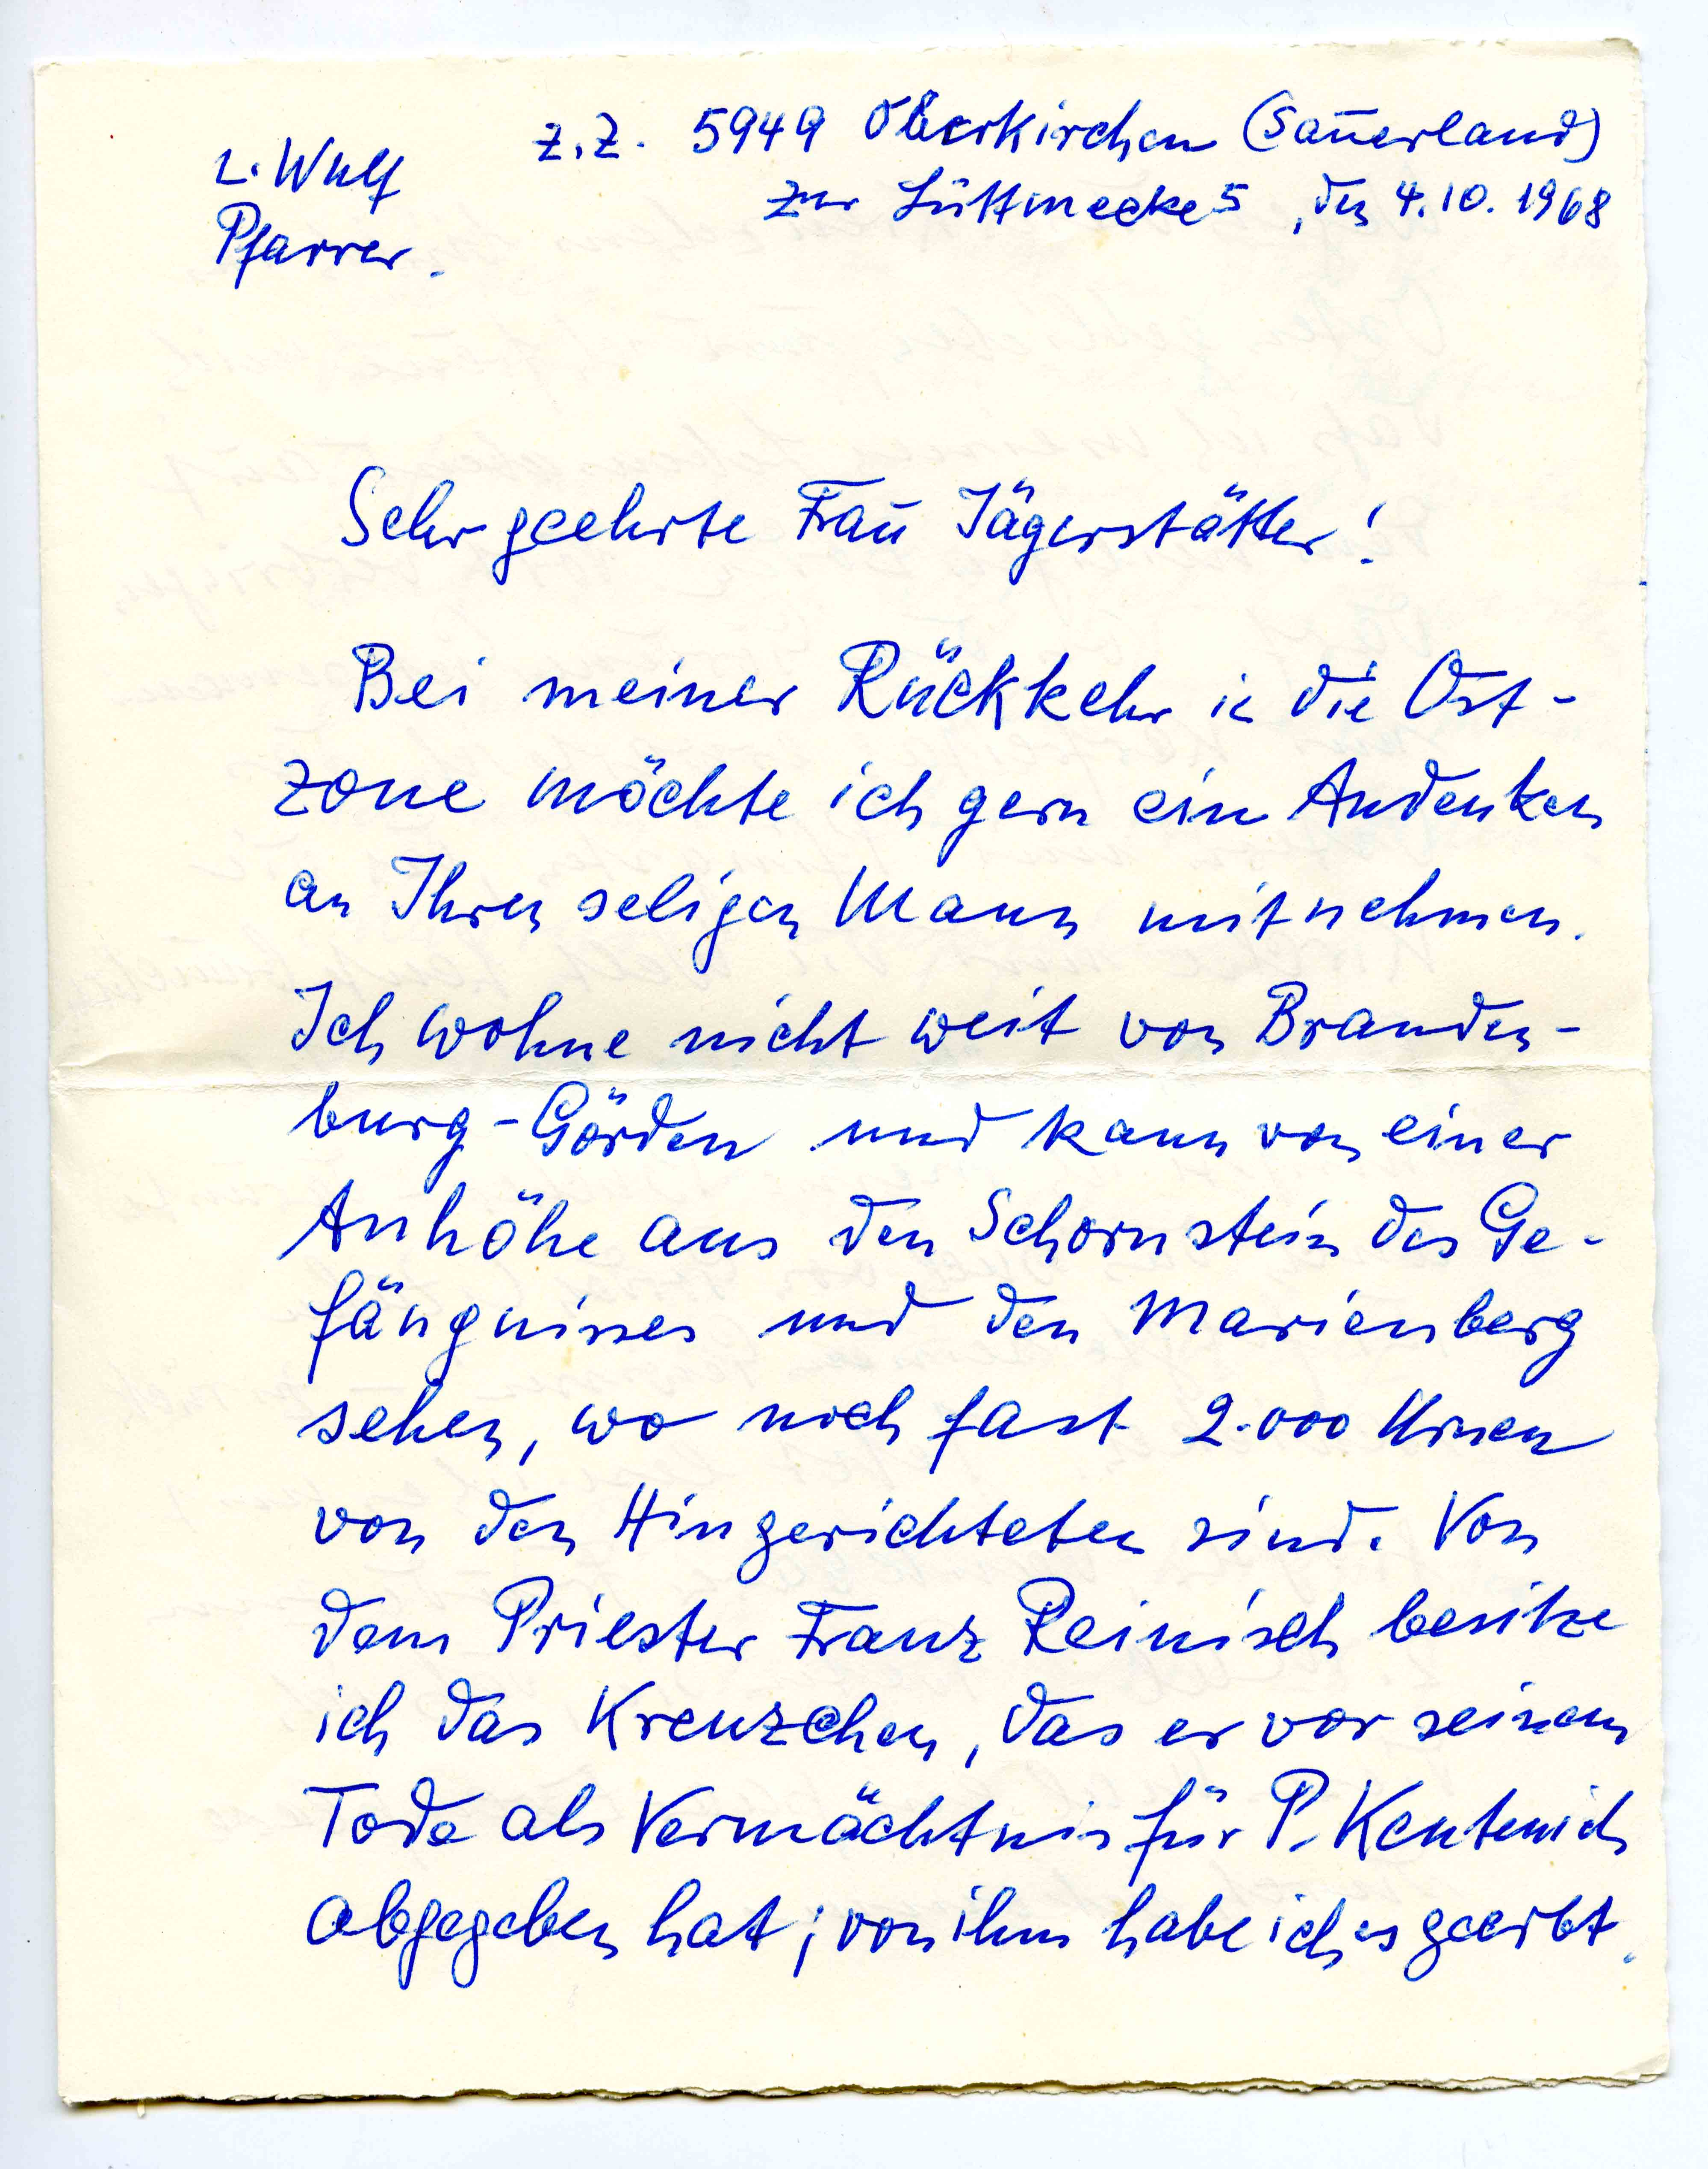 z.Z. 5949 Oberkirchen (Sauerland)
L. Wulf
zur Lüttmecke 5, den 4.10.1968
Pfarrer.
Sehr geehrte Frau Jägerstätter!
Bei meiner Rückkehr in die Ost-
zone möchte ich gern ein Andenken
an Ihren seligen Mann mitnehmen.
Ich wohne nicht weit von Branden-
burg-Görden und kann von einer
Anhöhe aus den Schornstein des Ge-
fängnisses und den Marienberg
sehen, wo noch fast 2.000 Urnen
von den Hingerichteten sind. Von
dem Priester Franz Reinisch besitze
ich das Kreuzchen, das er vor seinem
Tode als Vermächtnis für P. Kentenich
abgegeben hat; von ihm habe ich es geerbt.